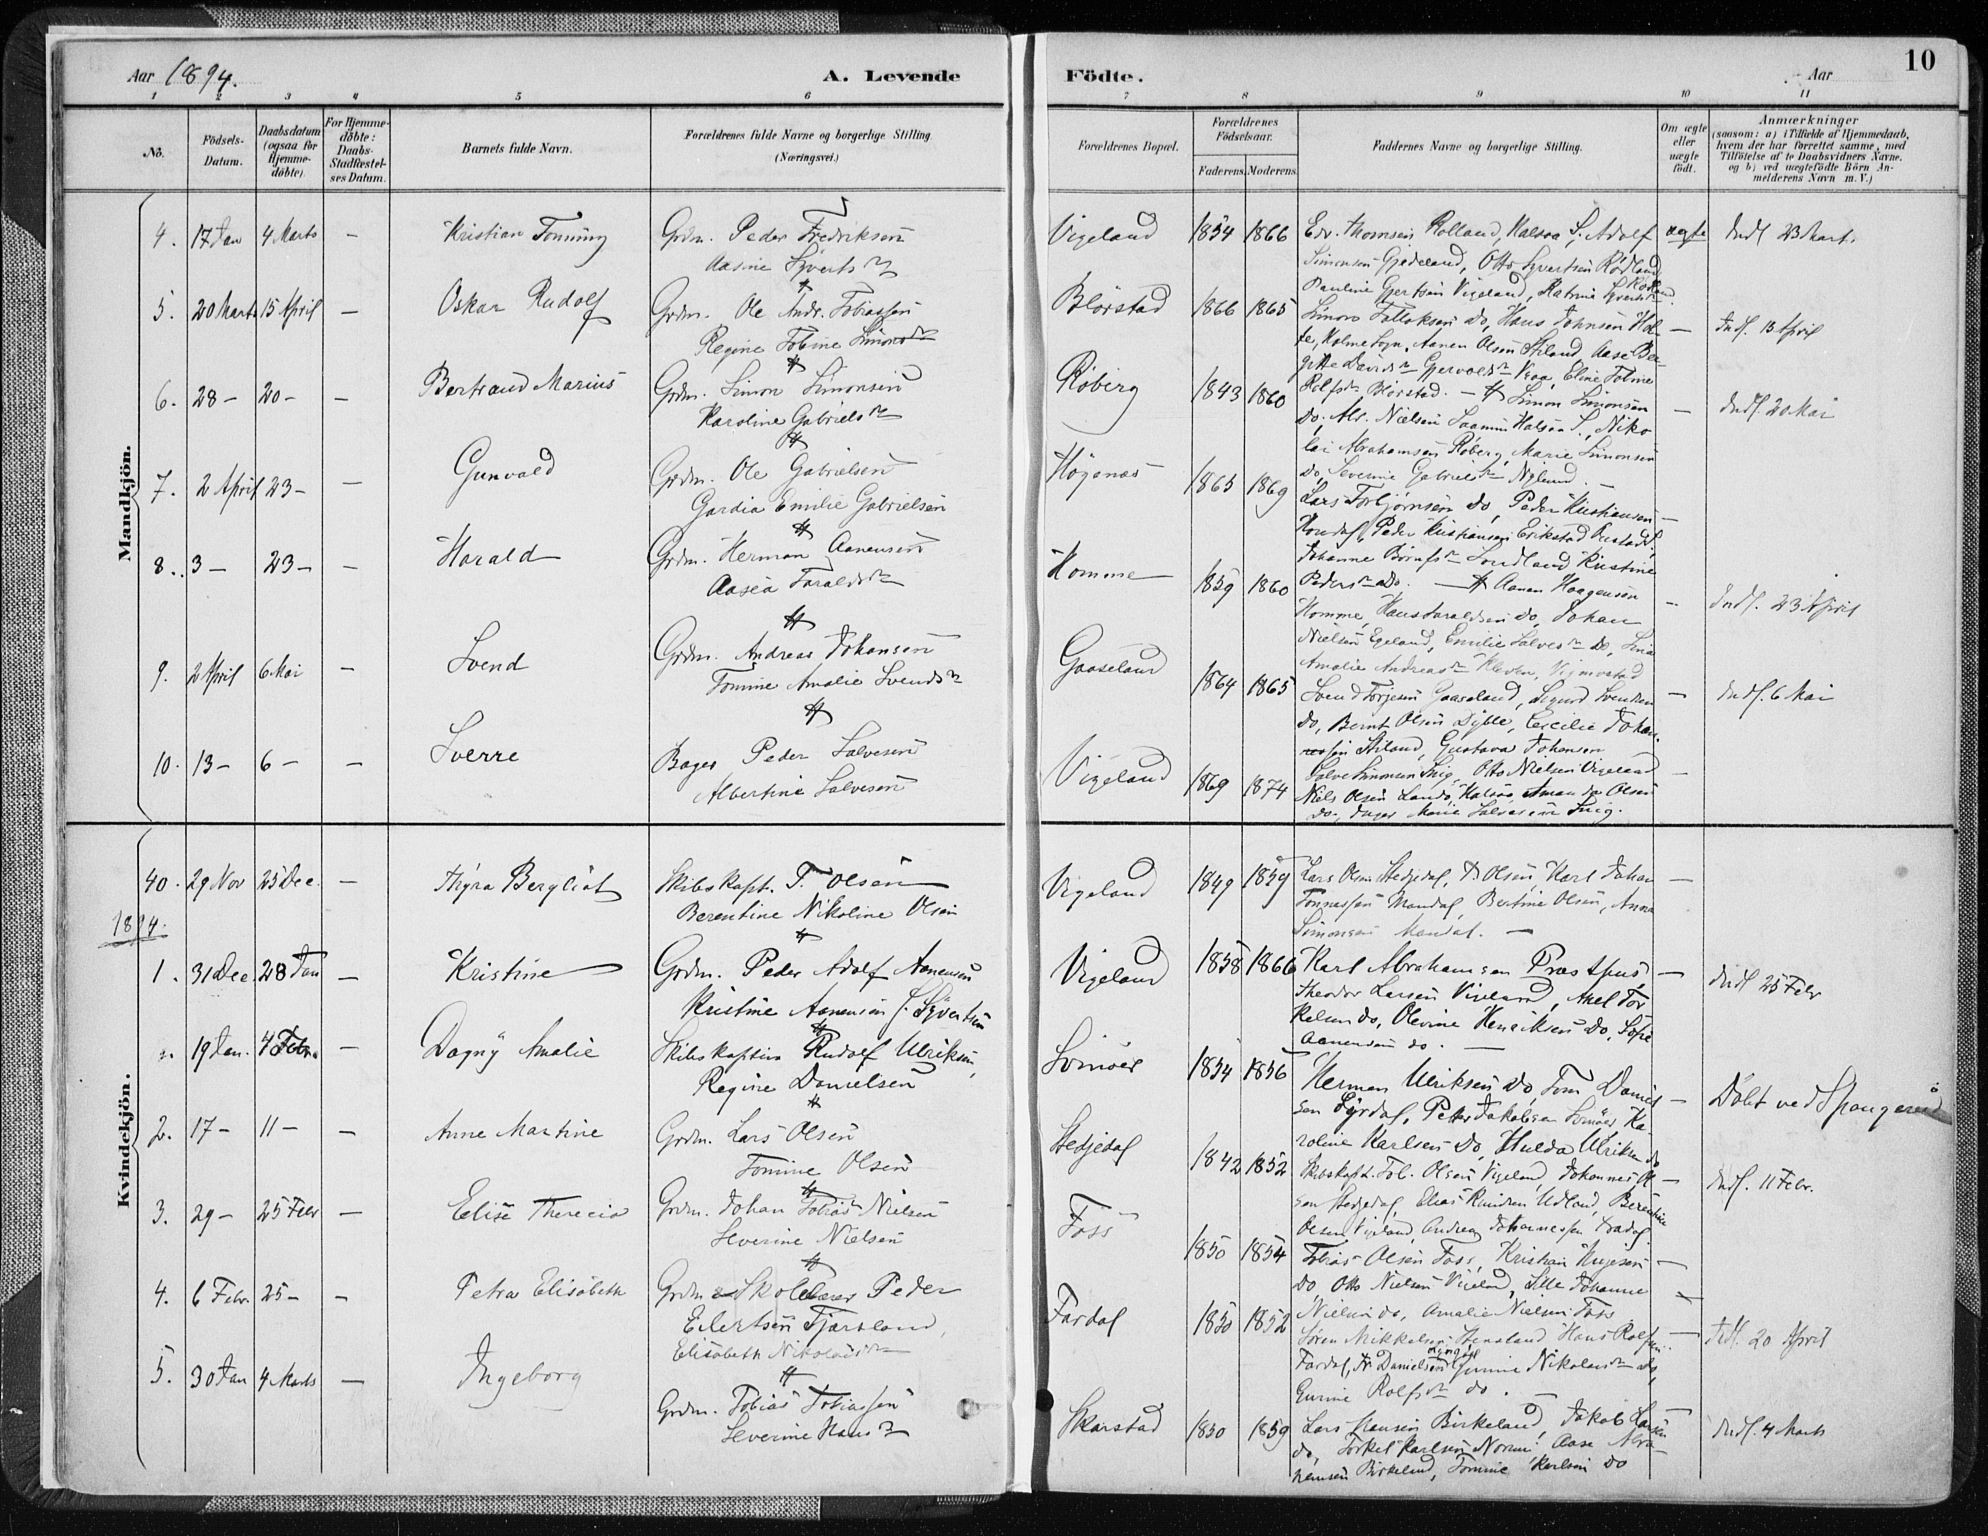 Aar 1894. A. Levende
1 2 3 4 5 6
No. Födsels-Datum. Daabsdatum (ogsaa for Hjemme-döbte). For Hjemme-döbte: Daabs-Stadfæstel-ses Datum. Barnets fulde Navn. Forældrenes fulde Navne og borgerlige Stilling. (Næringsvei.)
Mandkjön.
4. 17 Jan 4 Marts – Kristian Tonning Grdm. Peder Fredriksen
Aasine Syvertsdr
5. 20 Marts 15 April – Oskar Rudolf Grdm. Ole Andr. Tobiassen
Regine Tobine Simonsdr
6. 28 – 20 – – Bertrand Marius Grdm. Simon Simonsen
Karoline Gabrielsdr
7. 2 April 23 – – Gunvald Grdm. Ole Gabrielsen
Gardia Emilie Gabrielsen
8. 3 – 23 – – Harald Grdm. Herman Aanensen
Aasea Taraldsdr
9. 2 April 6 Mai – Svend Grdm. Andreas Johansen
Tomine Amalie Svendsdr
10. 13 – 6 – – Sverre Bager Peder Salvesen
Albertine Salvesen
Kvindekjön.
40. 29 Nov 25 Dec. – Thyra Bergliot Skibskapt. T. Olsen
Berentine Nikoline Olsen
1894.
1. 31 Dec. 28 Jan – Kristine Grdm. Peder Adolf Aanensen
Kristine Aanensen f. Syvertsen
19 Jan. 4 Febr. – Dagny Amalie Skibskaptein Rudolf Ulriksen,
Regine Danielsen
2. 17 – 11 – – Anne Martine Grdm. Lars Olsen
Tomine Olsen
3. 29 – 25 Febr – Elise Therecia Grdm. Johan Tobias Nielsen
Severine Nielsen
4. 6 Febr. 25 – – Petra Elisabeth Grdm Skolelærer Peder
Eilertsen Fjærsland,
Elisabeth Nikolaisdr
5. 30 Jan 4 Marts – Ingeborg
Grdm. Tobias Tobiassen
Severine Hansdr
Födte. Aar 10
7 8 9 10 11
Forældrenes Bopæl. Forældrenes Födselsaar. Faderens. Moderens. Faddernes Navne og borgerlige Stilling. Om ægte eller uægte födt. Anmærkninger (saasom: a) i Tilfælde af Hjemmedaab, hvem der har forrettet samme, med Tilföielse af te Daabsvidners Navne, og b) ved uægtefödte Börn An-melderens Navn m. V.)
Vigeland 1854 1866 Edv. Thomsen Rolland, Halsaa S; Adolf ægte Indf 23 Mart.
Simonsen Gjedeland, Otto Syvertsen Rødland
Pauline Gjertsen Vigeland, Katrine Syvertsdr
Blørstad 1866 1865 Simon Tallaksen do, Hans Johnsen Hol- – Indf. 13 April
te, Holme Sogn, Aanen Olsen Stiland, Aase Ber-
Røberg 1843 1860 Rolfsdr Blørstad. – Simon Simonsen – Indf. 20 Mai
do, Nielsen Halsaa S., Niko
lai Abrahamsen Røberg, Marie Simonsen
Høgenæs 1865 1869 do, Severine Gabrielsdr
Lars Torbjørnsen do, Peder Kristiansen –
Homme 1859 1860 Pedersdr do. – Aanen Haagensen – Indf. 23 April
Homme, Hans Taraldsen do, Johan
Nielsen Egeland, Emilie Salvesdr do,
Amalie Andreasdr
Gaaseland 1864 1865 Svend Torjesen Gaaseland, Sigurd Svendsen – Indf. 6 Mai
do, Bernt Olsen Dyble, Cecilie Johan-
nesen Stiland, Gustava Johansen
Vigeland 1869 1874 Salve Simonsen Snig, Otto Nielsen Vigeland –
Niels Olsen Halsaa, Amanda Olsen
do, Marie Salvesen Snig.
Vigeland 1849 1859 Lars Olsen Stedjedal, Olsen, Karl Johan –
Tønnessen Mandal, Bertine Olsen, Anna
Simonsen Mandal. –
Vigeland 1858 1866 Karl Abrahamsen Præsthus, – Indf 25 Febr
Theodor Larsen Vigeland, Axel Tor
kelsen do, Olevine Henriksen do, Sofie
Aanensen do. –
Svinøer 1854 1856 Herman Ulriksen do, Tom Daniel – Døbt ved Spangereid
sen Syrdal, Peter Jakobsen Svinøer Ka-
roline Karlsen do, Hulda Ulriksen do
Stedjedal 1842 1852 Skibskapt. Tob. Olsen Vigeland, Johannes Ol – Indf. 11 Febr.
sen Stedjedal, Elias Udland, Berentine
Olsen Vigeland, Andrea Johannessen
Foss 1850 1854 Tobias Olsen Foss, Kristian –
do, Otto Nielsen Vigeland, Johanne
Nielsen do, Amalie Nielsen Foss
Fardal 1850 1852 Søren Mikkelsen Stensland Hans Rolfsen – Indf. 20 April
Fardal, Danielsen Gurine Nikolaisdr do,
Gurine Rolfsdr do. –
Skarstad 1850 1859 Lars Hansen Birkeland, Jakob Larsen – Indf. 4 Marts
do, Torkel Karlsen Aase Abra-
hamsen Birkeland, Tomine Karlsen do